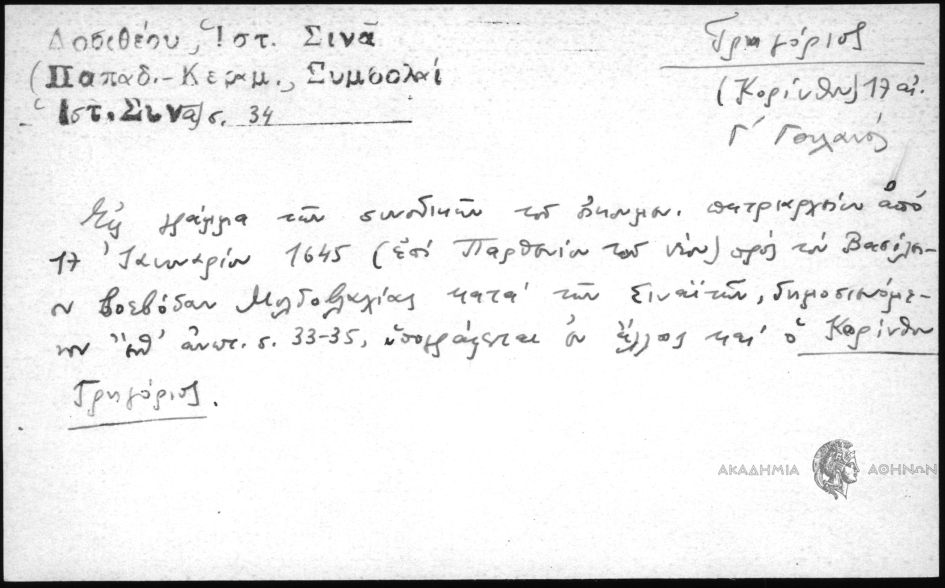 Δοσιθέου, Ἱστ. Σινᾶ
(Παπαδ.-Κεραμ., Συμβολαί
Ἱστ. Σινᾶ) σ. 34
Γρηγόριος
(Κορίνθου) 17 αἰ.
Γ΄ Γουλανός
Εἰς γράμμα τῶν συνοδικῶν τοῦ οἰκουμεν. πατριαρχείου ἀπό
17 Ἰανουαρίου 1645 (ἐπί Παρθενίου τοῦ νέου) πρός τόν Βασίλει-
ον βοεβόδαν Μολδοβλαχίας κατά τῶν Σιναϊτῶν, δημοσιευόμε-
νον ἀνωτ. σ. 33-35, ὑπογράφεται ἐν ἄλλοις καί ὁ Κορίνθου
Γρηγόριος.
ΑΚΑΔΗΜΙΑ ΑΘΗΝΩΝ